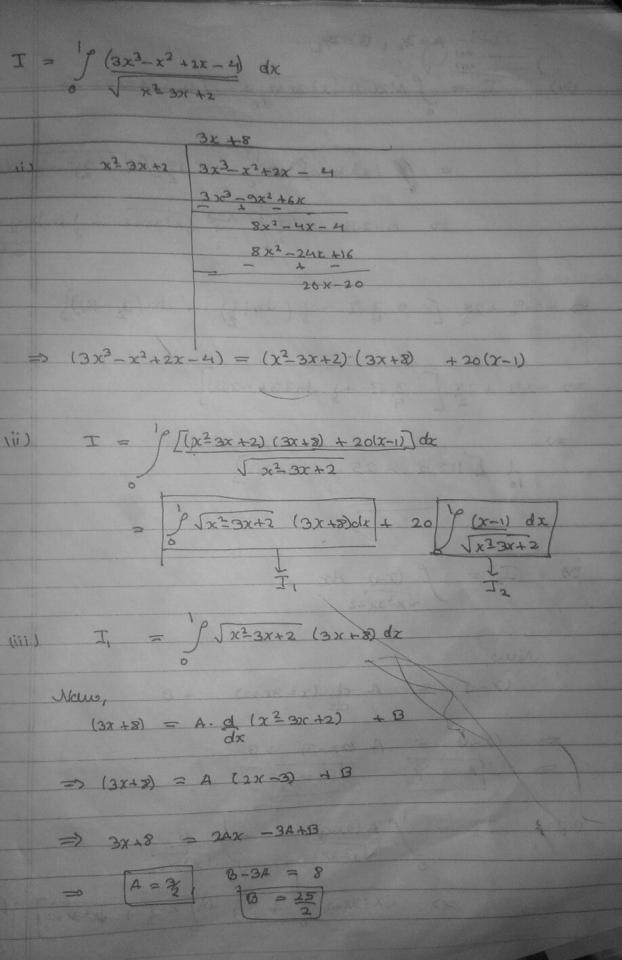 I = ∫₀¹ (3x³ - x² + 2x - 4) dx
√ x² - 3x + 2
3x + 8
(i) x² - 3x + 2 | 3x³ - x² + 2x - 4
3x³ - 9x² + 6x
- + -
8x² - 4x - 4
8x² - 24x + 16
- + -
20x - 20
⇒ (3x³ - x² + 2x - 4) = (x² - 3x + 2) (3x + 8) + 20(x - 1)
(ii) I = ∫₀¹ [(x² - 3x + 2) (3x + 8) + 20(x - 1)] dx
√ x² - 3x + 2
= ∫₀¹ √x² - 3x + 2 (3x + 8) dx + 20 ∫₀¹ (x - 1) dx
√x² - 3x + 2
↓ ↓
I₁ I₂
(iii) I₁ = ∫₀¹ √x² - 3x + 2 (3x + 8) dx
Now,
(3x + 8) = A. d (x² - 3x + 2) + B
dx
⇒ (3x + 8) = A (2x - 3) + B
⇒ 3x + 8 = 2Ax - 3A + B
⇒ A = 3/2 , B - 3A = 8
B = 25/2